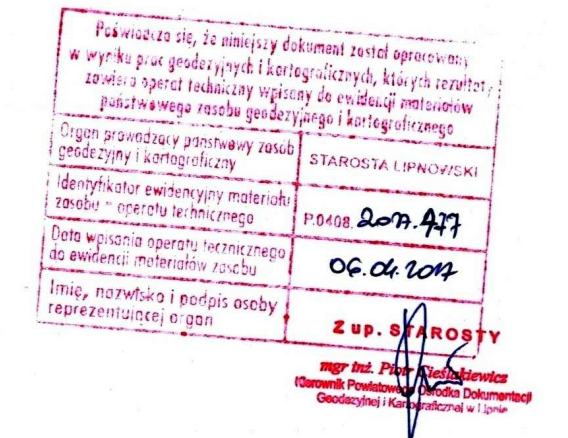 Poświadcza się, że niniejszy dokument został opracowany
w wyniku prac geodezyjnych i kartograficznych, których rezultaty
zawiera operat techniczny wpisany do ewidencji materiałów
państwowego zasobu geodezyjnego i kartograficznego
Organ prowadzący państwowy zasób
geodezyjny i kartograficzny
STAROSTA LIPNOWSKI
Identyfikator ewidencyjny materiału
zasobu - operatu technicznego
P.0408. 2017.477
Data wpisania operatu tecznicznego
do ewidencji materiałów zasobu
06.04.2017
Imię, nazwisko i podpis osoby
reprezentującej organ
Z up. STAROSTY
mgr inż. Piotr Cieślakiewicz
Kierownik Powiatowego Ośrodka Dokumentacji
Geodezyjnej i Kartograficznej w Lipnie